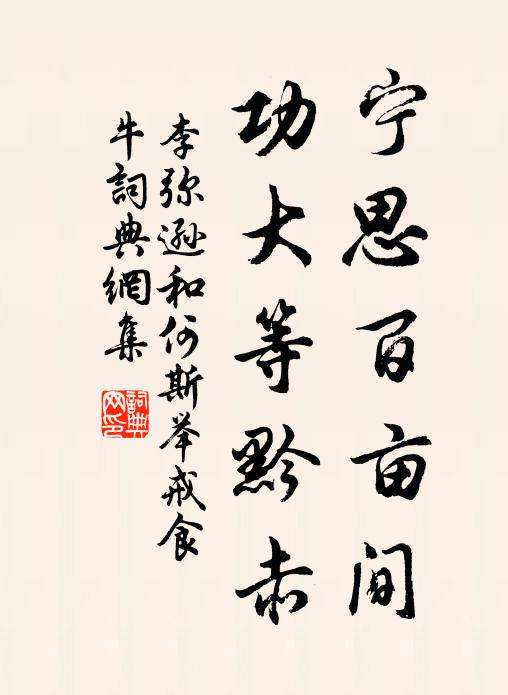 宁思百亩间
功大等黔赤
李弥逊和何斯举戒食
牛詞典網集
詞典
网印